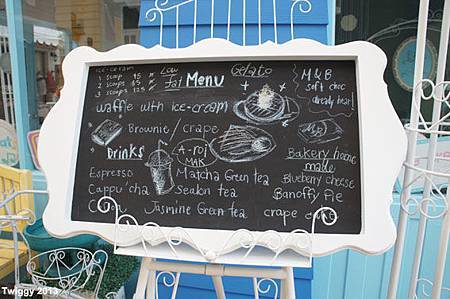 ICE-CREAM
1 scoop 45
2 scoops 85
3 scoops 125
Low fat
Menu
Gelato
M&B
Soft choc
already heart
waffle with ice-cream
Brownie / crape
Drinks
A-roi MAK
Bakery home made
Espresso
Matcha Green tea
Blueberry cheese
Cappu'cha
Season tea
Banoffy Pie
Jasmine Green tea
crape cake
Twiggy 2013